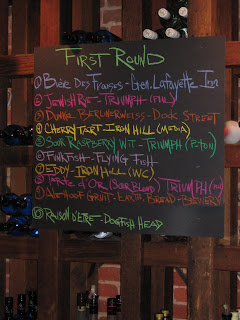 First Round
① Biére Des Fraises - Gen. Lafayette Inn
② Jewish Rye - Triumph (Phl)
③ Dunkel Berlinerweiss - Dock Street
④ Cherry Tart - Iron Hill (Media)
⑤ Sour Raspberry Wit - Triumph (P-ton)
⑥ Pinkfish - Flying Fish
⑦ Eddy - Iron Hill (WC)
⑧ D'Or (Sour Blend) Triumph
⑨ Alehoof Gruit - Earth, Bread + Brewery
⑩ Raison D'Etre - Dogfish Head